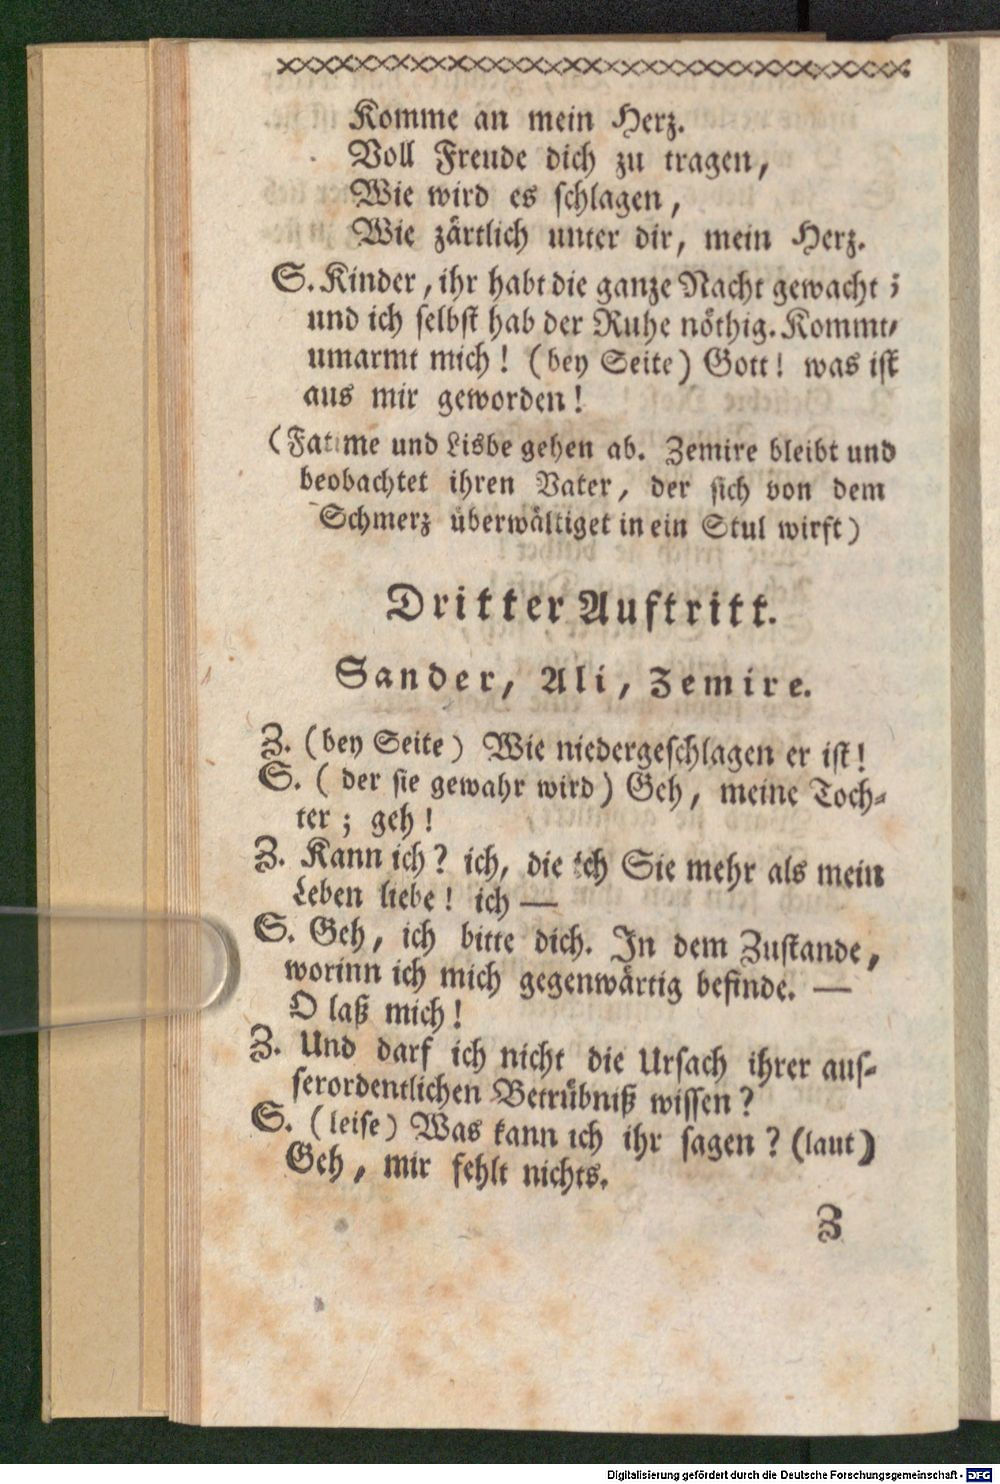 Komme an mein Herz.
Voll Freude dich zu tragen,
Wie wird es schlagen,
Wie zärtlich unter dir, mein Herz.
S. Kinder, ihr habt die ganze Nacht gewacht;
und ich selbst hab der Ruhe nöthig. Kommt,
umarmt mich! (bey Seite) Gott! was ist
aus mir geworden!
(Fatime und Lisbe gehen ab. Zemire bleibt und
beobachtet ihren Vater, der sich von dem
Schmerz überwältiget in ein Stul wirft)
Dritter Auftritt.
Sander, Ali, Zemire.
Z. (bey Seite) Wie niedergeschlagen er ist!
S. (der sie gewahr wird) Geh, meine Toch-
ter; geh!
Z. Kann ich? ich, die ich Sie mehr als mein
Leben liebe! ich —
S. Geh, ich bitte dich. In dem Zustande,
worinn ich mich gegenwärtig befinde. —
O laß mich!
Z. Und darf ich nicht die Ursach ihrer aus-
serordentlichen Betrübniß wissen?
S. (leise) Was kann ich ihr sagen? (laut)
Geh, mir fehlt nichts.
Z
Digitalisierung gefördert durch die Deutsche Forschungsgemeinschaft - DFG